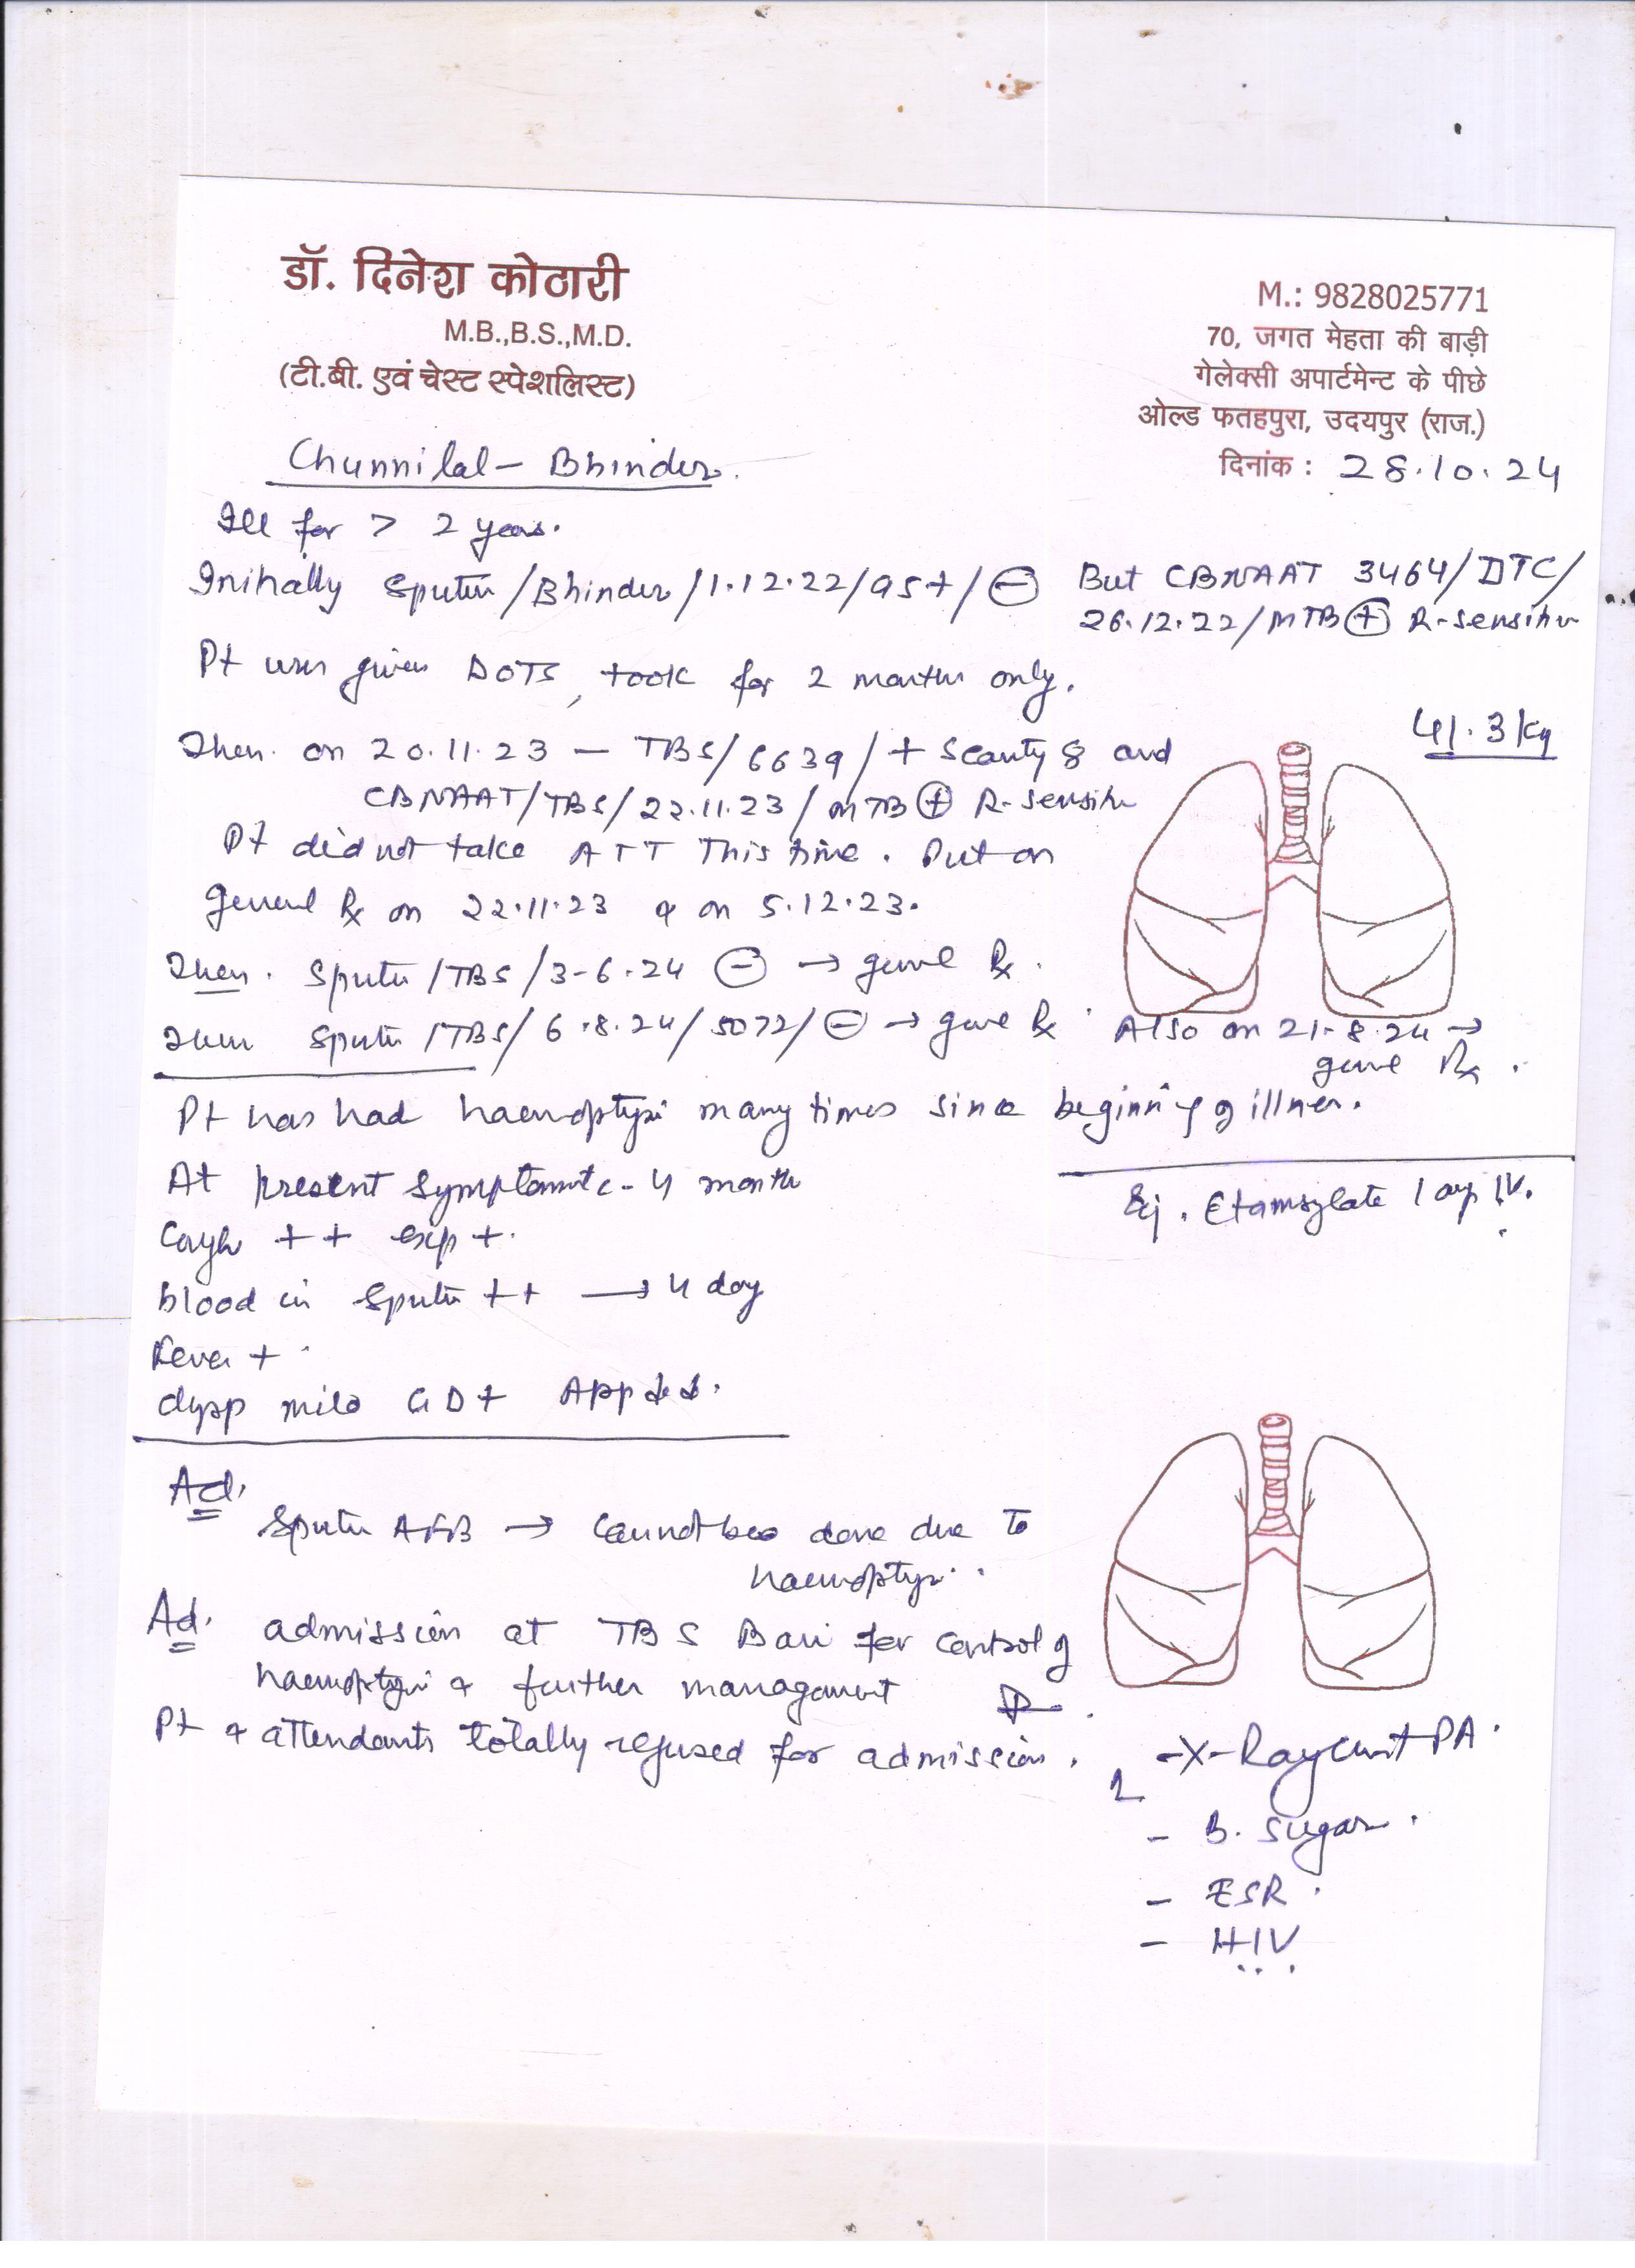 डॉ. दिनेश कोठारी
M.B.,B.S.,M.D.
(टी.बी. एवं चेस्ट स्पेशलिस्ट)
M.: 9828025771
70, जगत मेहता की बाड़ी
गेलेक्सी अपार्टमेन्ट के पीछे
ओल्ड फतहपुरा, उदयपुर (राज.)
दिनांक : 28.10.24
Chunnilal - Bhinder.
Ill for > 2 years.
Initally Sputum/Bhinder/1.12.22/957/⊖ But CBNAAT 3464/DTC/
26.12.22/MTB⊕ R-sensitive
Pt was given DOTS, took for 2 months only.
41.3 kg
Then on 20.11.23 — TBS/6639/+ Scanty 8 and
CBNAAT/TBS/22.11.23/MTB⊕ R-sensitive
Pt did not take ATT This time. Put on
general Rx on 22.11.23 & on 5.12.23.
Then. Sputum/TBS/3-6.24 ⊖ → general Rx.
Then Sputum/TBS/6.8.24/5072/⊖ → general Rx. Also on 21.8.24 →
general Rx.
Pt has had haemoptysis many times since beginning of illness.
At present symptomatic - 4 months
Inj. Etamsylate 1 amp IV.
Cough ++ exp +.
blood in sputum ++ → 4 day
Fever +
dysp mild GD+ App ↓↓.
Ad.
Sputum AFB → cannot be done due to
haemoptysis.
Ad. admission at TBS Bari for control of
haemoptysis & further management
Pt & attendants totally refused for admission.
- X-Ray chest PA.
- B. Sugar.
- ESR.
- HIV